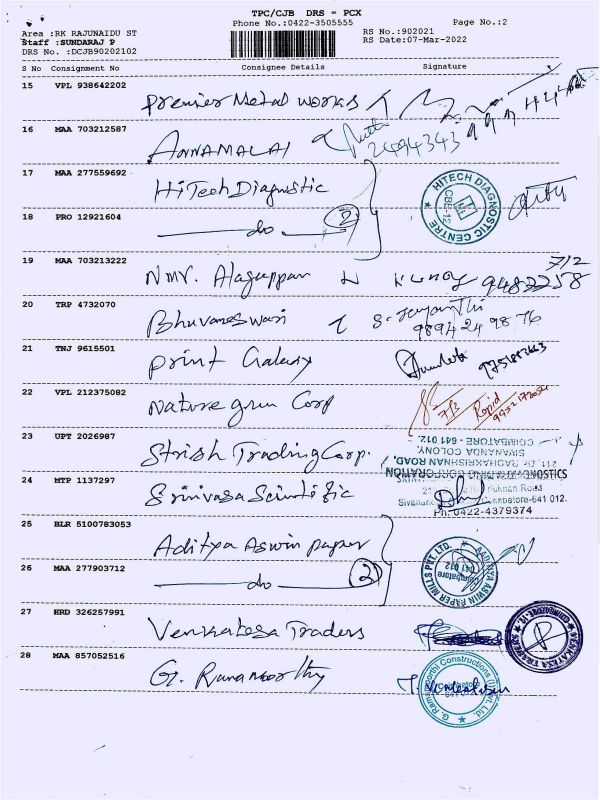 TPC/CJB DRS = PCX
Phone No.:0422-3505555
Page No.:2
Area :RK RAJUNAIDU ST
Staff :SUNDARAJ P
DRS No. :DCJB90202102
RS No.:902021
RS Date:07-Mar-2022
S No Consignment No Consignee Details Signature
15 VPL 938642202
Premier Metal Works
16 MAA 703212587
ANNAMALAI
2494343
17 MAA 277559692
HiTech Diagnostic
HITECH DIAGNOSTIC CENTRE
CBE-12
18 PRO 12921604
do 2
19 MAA 703213222
NMV. Alagappan
712
20 TRP 4732070
Bhuvaneswari
S. Jayanthi
9894249876
21 TNJ 9615501
Print Galaxy
22 VPL 212375082
Nature grun Corp
Rapid
23 UPT 2026987
Strish Trading Corp.
211, Dr. RADHAKRISHNAN ROAD,
SIVANANDA COLONY
COIMBATORE - 641 012.
24 MTP 1137297
Srinivasa Scintific
Coimbatore-641 012.
Ph: 0422-4379374
25 BLR 5100783053
Aditya Aswin paper
26 MAA 277903712
do 2
AADITYA ASWIN PAPER MILLS PVT. LTD.
Coimbatore
641 012
27 HRD 326257991
Venkatesa Traders
28 MAA 857052516
G. Ramamoorthy
G. Ramamoorthi Constructions (I) Pvt. Ltd.